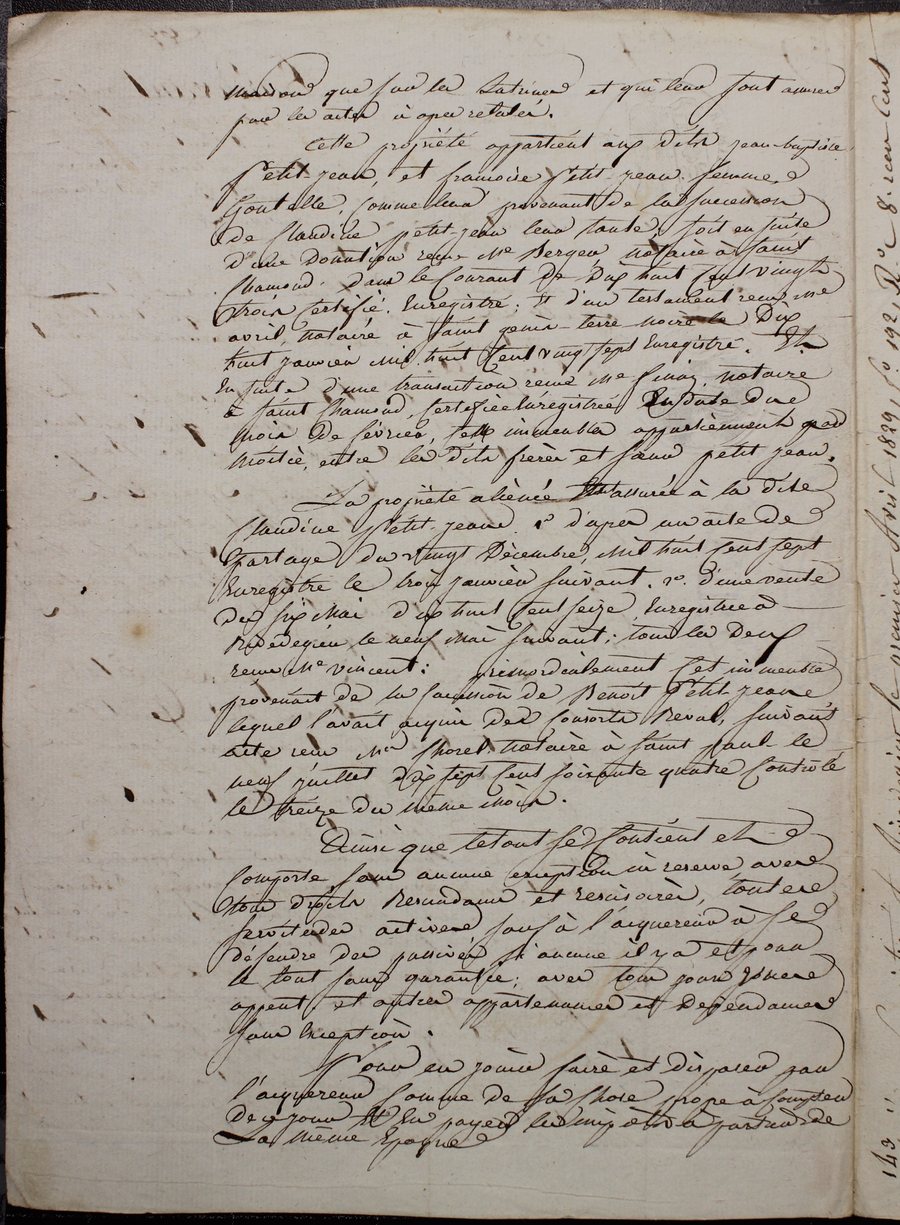 maison que sur les latrines et qui leur sont assurés
par les actes ci après relatés.
Cette propriété appartient aux dits jean-baptiste
Petit jean, et francoise Petit-jean femme
Gontelle, comme leur provenant de la succession
de Claudine Petit-jean leur tante, soit en suite
d'une Donation recue Me Bergeu notaire à Saint
Chamond, dans le courant de Dix huit cent vingt
trois certifié Enregistré; Et d'un testament recu Me
avril, Notaire à Saint genis-terre noire le Dix
huit janvier mil huit cent vingt sept Enregistré. Et
En suite d'une transaction recue Me finaz, notaire
à Saint Chamond, certifiée Enregistrée En date du
mois de février, Les immeubles appartiennent par
moitié, entre les dits frère et sœur petit jean.
La propriété aliénée Est assurée à la dite
Claudine Petit jean 1o d'après un acte de
Partage du vingt Décembre, mil huit cent sept
Enregistré le trois janvier suivant. 2o. d'une vente
du six mai dix huit cent seize, Enregistrée à
Rivedegier le neuf mai suivant; tous les Deux
recus Me vincent; primordialement Cet immeuble
provenait de la succession de Benoit Petit jean
lequel l'avait acquis des consorts Reval, suivant
acte recu Me Chorel notaire à Saint paul le
neuf juillet dix sept cent soixante quatre Contrôlé
le treize du même mois.
Ainsi que le tout se Contient et
Comporte sans aucune exception ni reserve avec
tous droits Rescindans et rescisoires, toutes
servitudes actives sauf à l'acquereur à se
défendre des passives si aucune il y a et pour
le tout sans garantie; avec tous jours
et autres appartenances et Dependances
sans Exception.
Pour en jouir faire et disposer par
l'acquereur comme de sa chose propre à compter
de ce jour Et En payer les impots à partir de
La même Epoque
143
le premier Avril 1829, fo 192, Ro C 8: recu cent